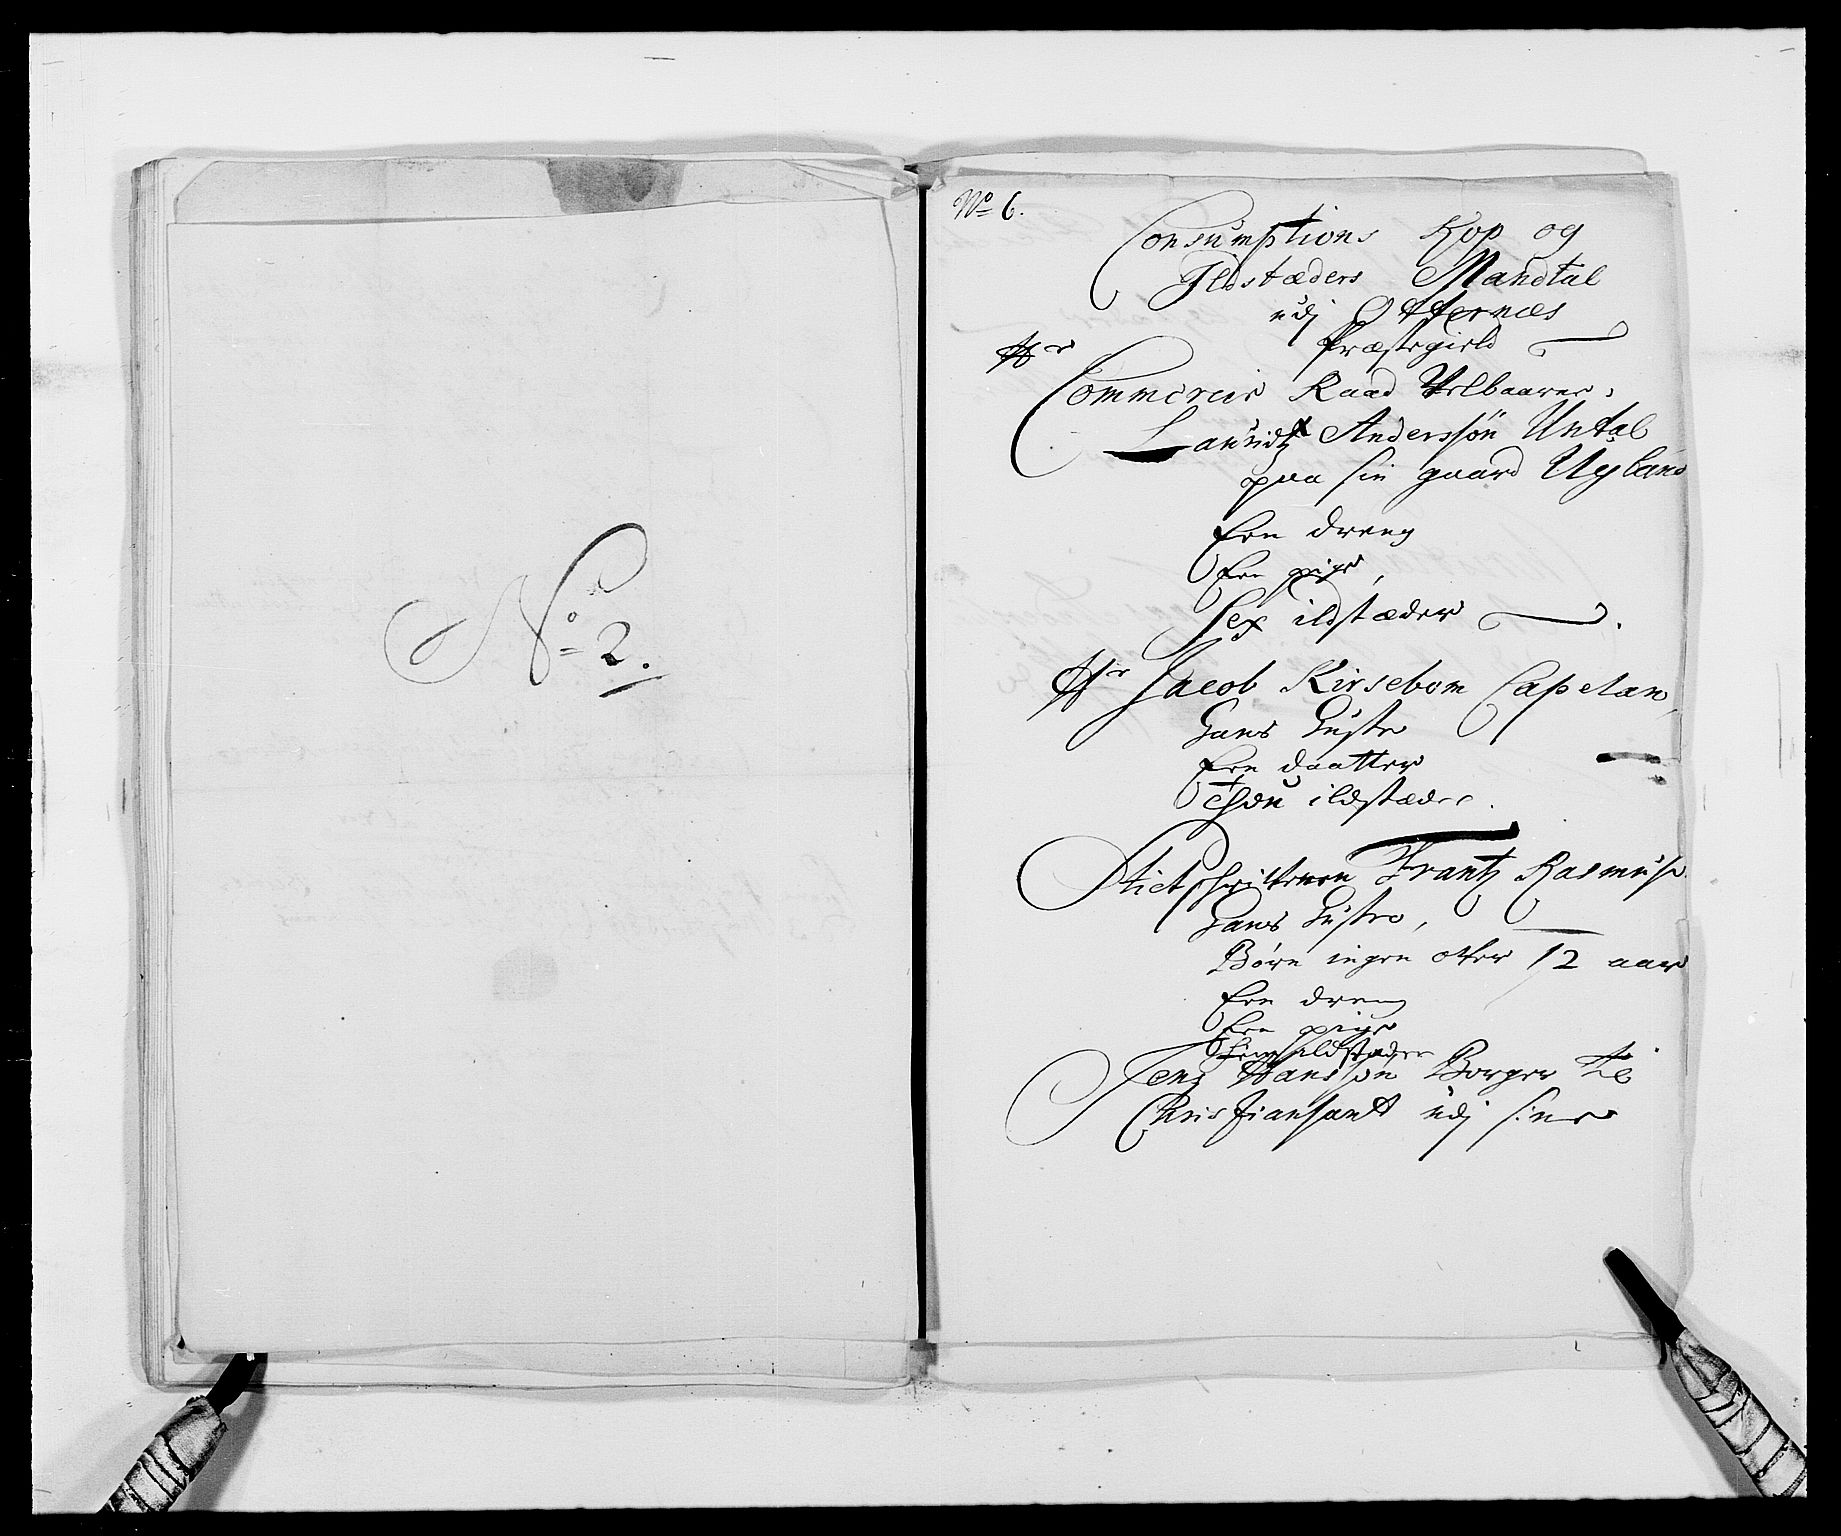 No 2.
No 6.
Consumptions Kop og
Ildstæders Mandtal
udj Otternæs
Præstegield
Hr
Commercie Raad Velbaarne
Lauridtz Anderssøn Untal
paa sin gaard Nyland
Een dreng
Een pige,
Sex ildstæder
Hr Jacob Kirsebom Capelan
Hans Hustro
Een daatter
Thou ildstæder.
Frantz Rasmuss.
Hans Hustro,
Børn ingen ofver 12 aar
Een dreng
Een pige
ildstæder
Jens Hanssøn Borger til
Christiansand udj sine